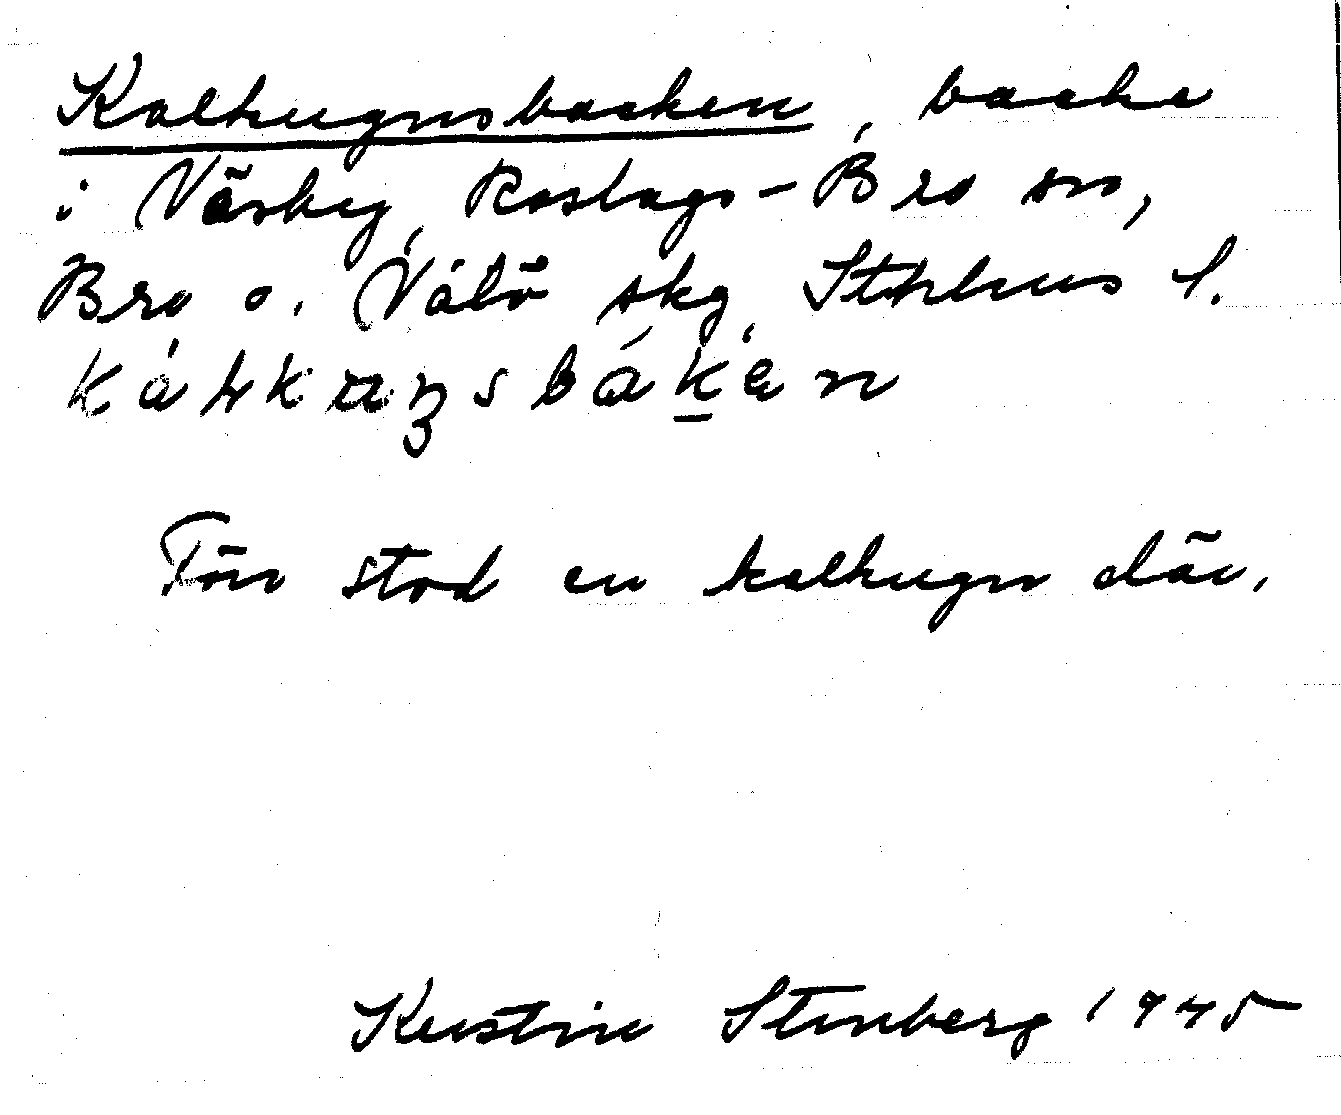 Kalkugnsbacken, backe
i Väsby, Roslags-Bro sn,
Bro o. Vätö skg, Sthlms l.
Förr stod en kalkugn där.
Kerstin Stenberg 1945